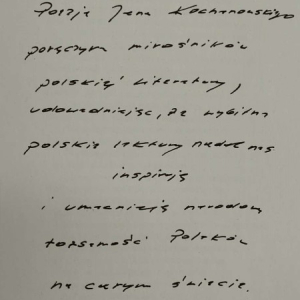 Poezja Jana Kochanowskiego
połączyła miłośników
polskiej literatury,
udowadniając, że wybitne
polskie lektury nadal nas
inspirują
i umacniają narodową
tożsamość Polaków
na całym świecie.